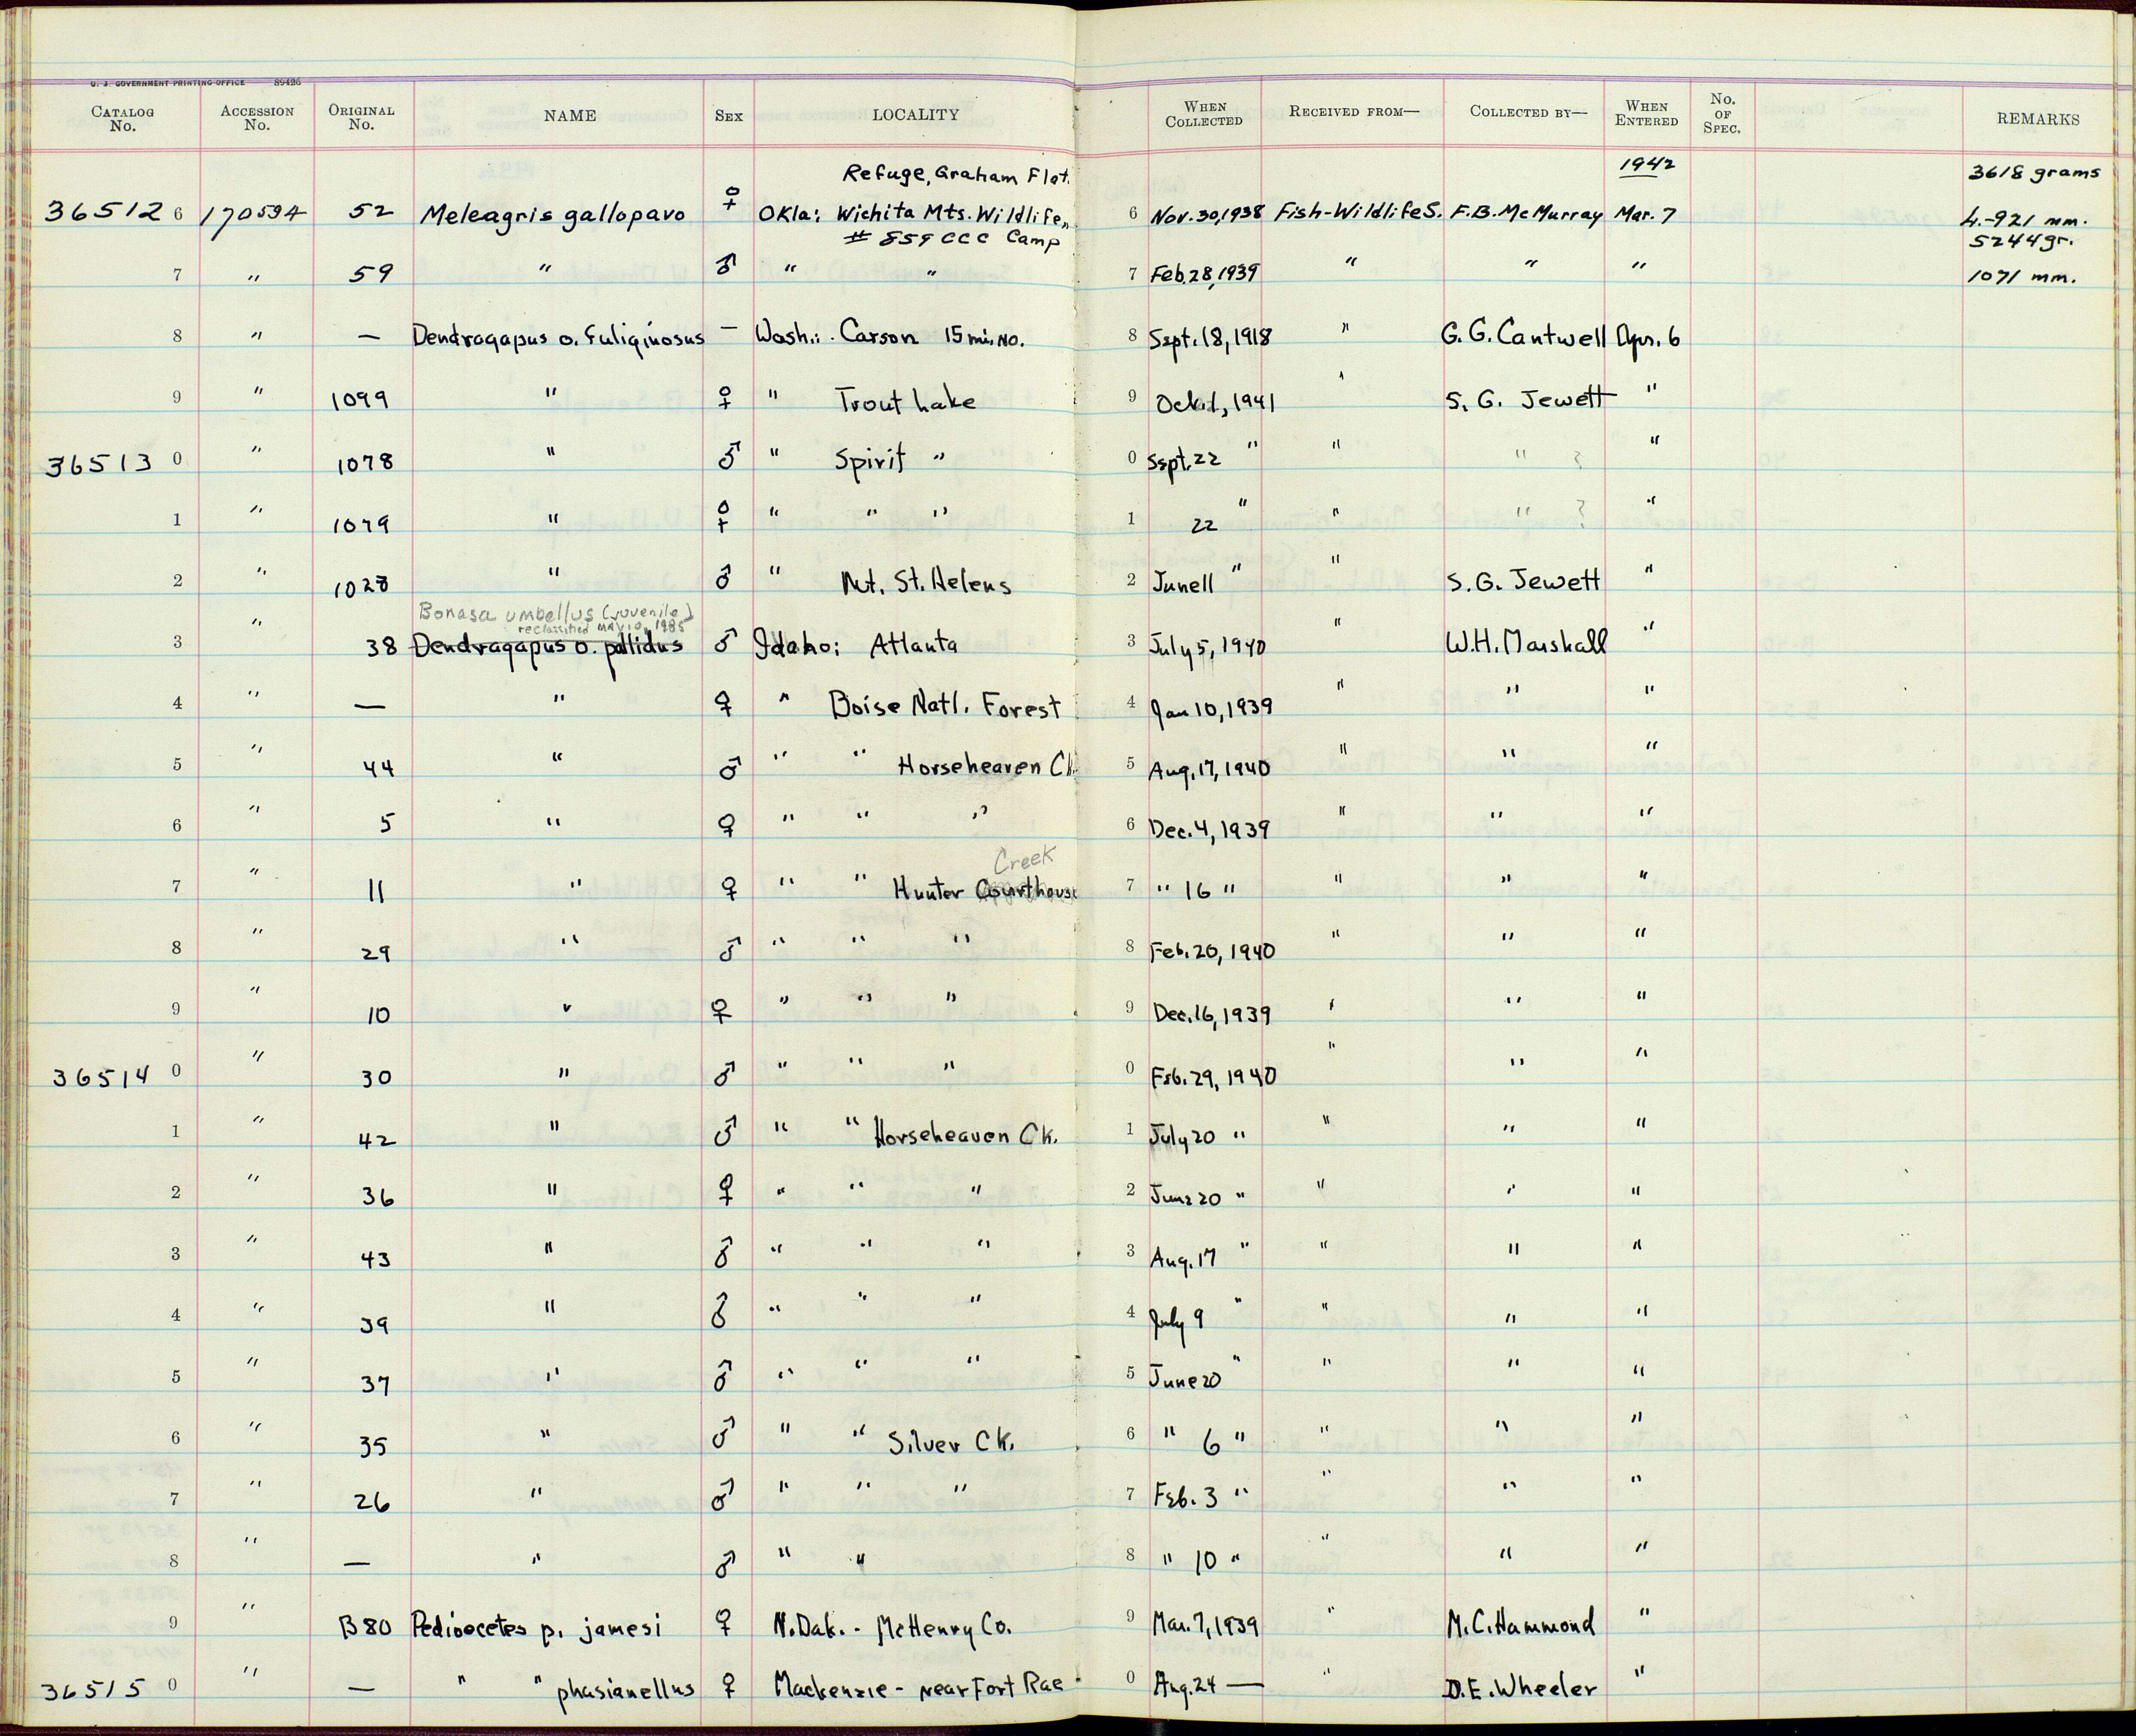 U. S. GOVERNMENT PRINTING OFFICE 89426
CATALOG No. ACCESSION No. ORIGINAL No. NAME SEX LOCALITY WHEN COLLECTED RECEIVED FROM— COLLECTED BY— WHEN ENTERED No. OF SPEC. REMARKS
Refuge, Graham Flat. 1942 3618 grams
36512 6 170594 52 Meleagris gallopavo ♀ Okla: Wichita Mts. Wildlife 6 Nov. 30, 1938 Fish-Wildlife S. F.B. McMurray Mar. 7 4.-921 mm.
# 859 CCC Camp 5244 gr.
7 " 59 " ♂ " " 7 Feb. 28, 1939 " " " 1071 mm.
8 " — Dendragapus o. fuliginosus — Wash.: Carson 15 mi. No. 8 Sept. 18, 1918 " G. G. Cantwell Apr. 6
9 " 1099 " ♀ " Trout Lake 9 Oct. 1, 1941 " S. G. Jewett "
36513 0 " 1078 " ♂ " Spirit " 0 Sept. 22 " " " ? "
1 " 1079 " ♀ " " " 1 22 " " " ? "
2 " 1028 " ♂ " Mt. St. Helens 2 June 11 " " S. G. Jewett "
Bonasa umbellus (juvenile)
reclassified MAY 10, 1985
3 " 38 Dendragapus o. pallidus ♂ Idaho: Atlanta 3 July 5, 1940 " W. H. Marshall "
4 " — " ♀ " Boise Natl. Forest 4 Jan 10, 1939 " " "
5 " 44 " ♂ " " Horseheaven Ck. 5 Aug. 17, 1940 " " "
6 " 5 " ♀ " " " 6 Dec. 4, 1939 " " "
Creek
7 " 11 " ♀ " " Hunter Courthouse 7 " 16 " " " "
8 " 29 " ♂ " " " 8 Feb. 20, 1940 " " "
9 " 10 " ♀ " " " 9 Dec. 16, 1939 " " "
36514 0 " 30 " ♂ " " " 0 Feb. 29, 1940 " " "
1 " 42 " ♂ " " Horseheaven Ck. 1 July 20 " " " "
2 " 36 " ♀ " " " 2 June 20 " " " "
3 " 43 " ♂ " " " 3 Aug. 17 " " " "
4 " 39 " ♂ " " " 4 July 9 " " " "
5 " 37 " ♂ " " " 5 June 20 " " " "
6 " 35 " ♂ " " Silver Ck. 6 " 6 " " " "
7 " 26 " ♂ " " " 7 Feb. 3 " " " "
8 " — " ♂ " " 8 " 10 " " " "
9 " B 80 Pedioecetes p. jamesi ♀ N. Dak. - McHenry Co. 9 Mar. 7, 1939 " M. C. Hammond "
36515 0 " — " " phasianellus ♀ Mackenzie - near Fort Rae 0 Aug. 24 — " D. E. Wheeler "